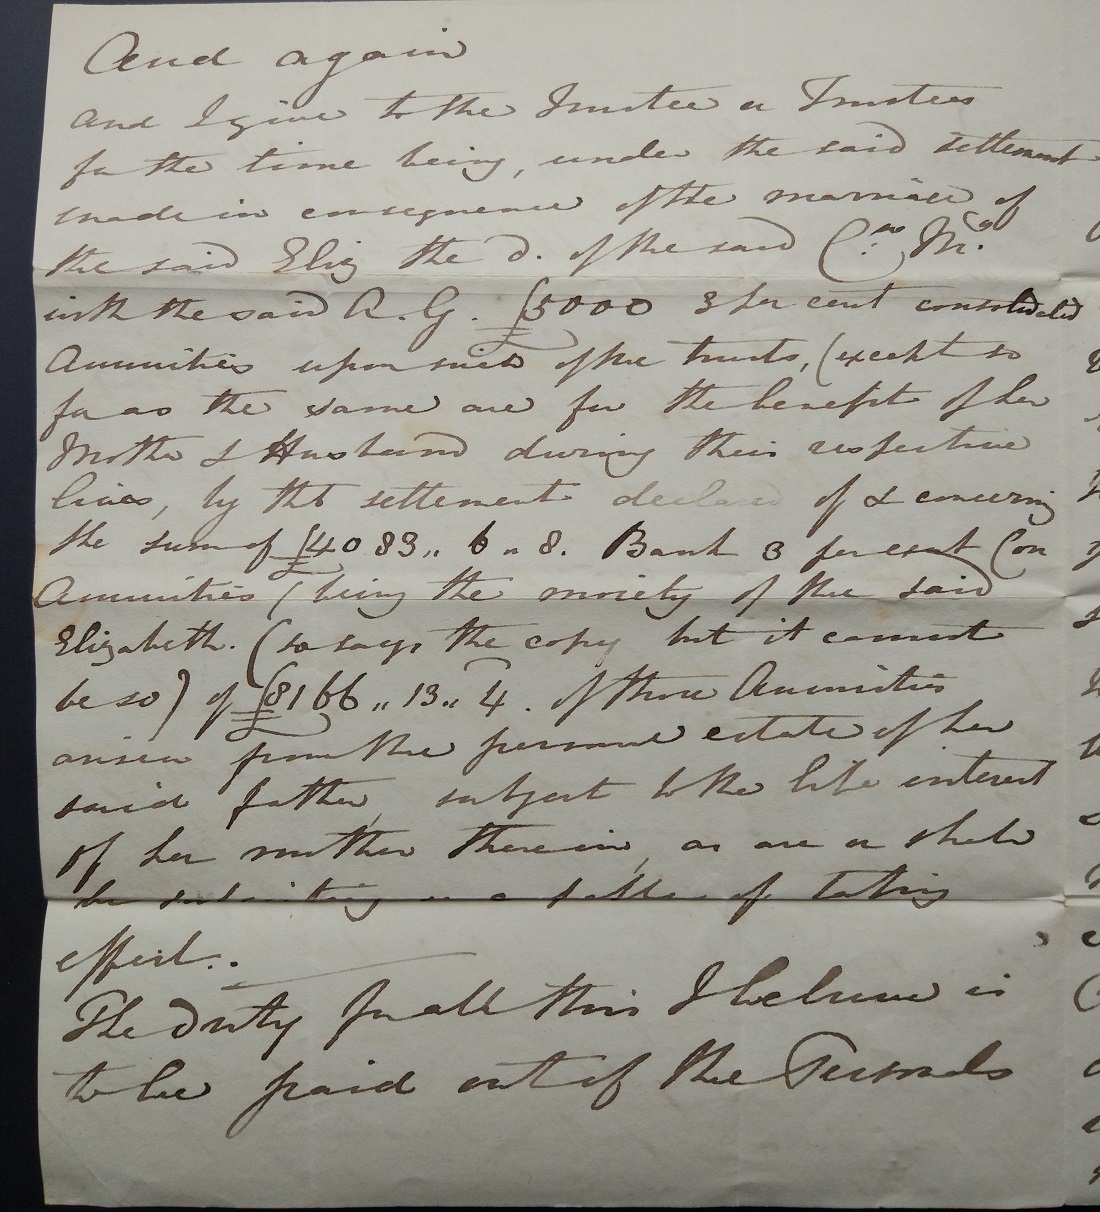 And again
and I give to the Trustee or Trustees
for the time being, under the said settlement
made in consequence of the marriage of
the said Eliz the d. of the said
with the said A. G. £5000 3 per cent consolidated
Annuities upon such of the trusts, (except so
far as the same are for the benefit of her
Mother & Husband during their respective
lives, by tht settlement declared of & concerning
the sum of £4083,, 6 ,, 8. Bank 3 per cent Con
Annuities (being the moiety of the said
Elizabeth. (so says the copy but it cannot
be so) of £8166 ,, 13 ,, 4 . of those Annuities
arisen from the personal estate of her
said father, subject to the life interest
of her mother therein, as are or shall
be subsisting or capable of taking
effect..
The duty for all this I believe is
to be paid out of the Personals